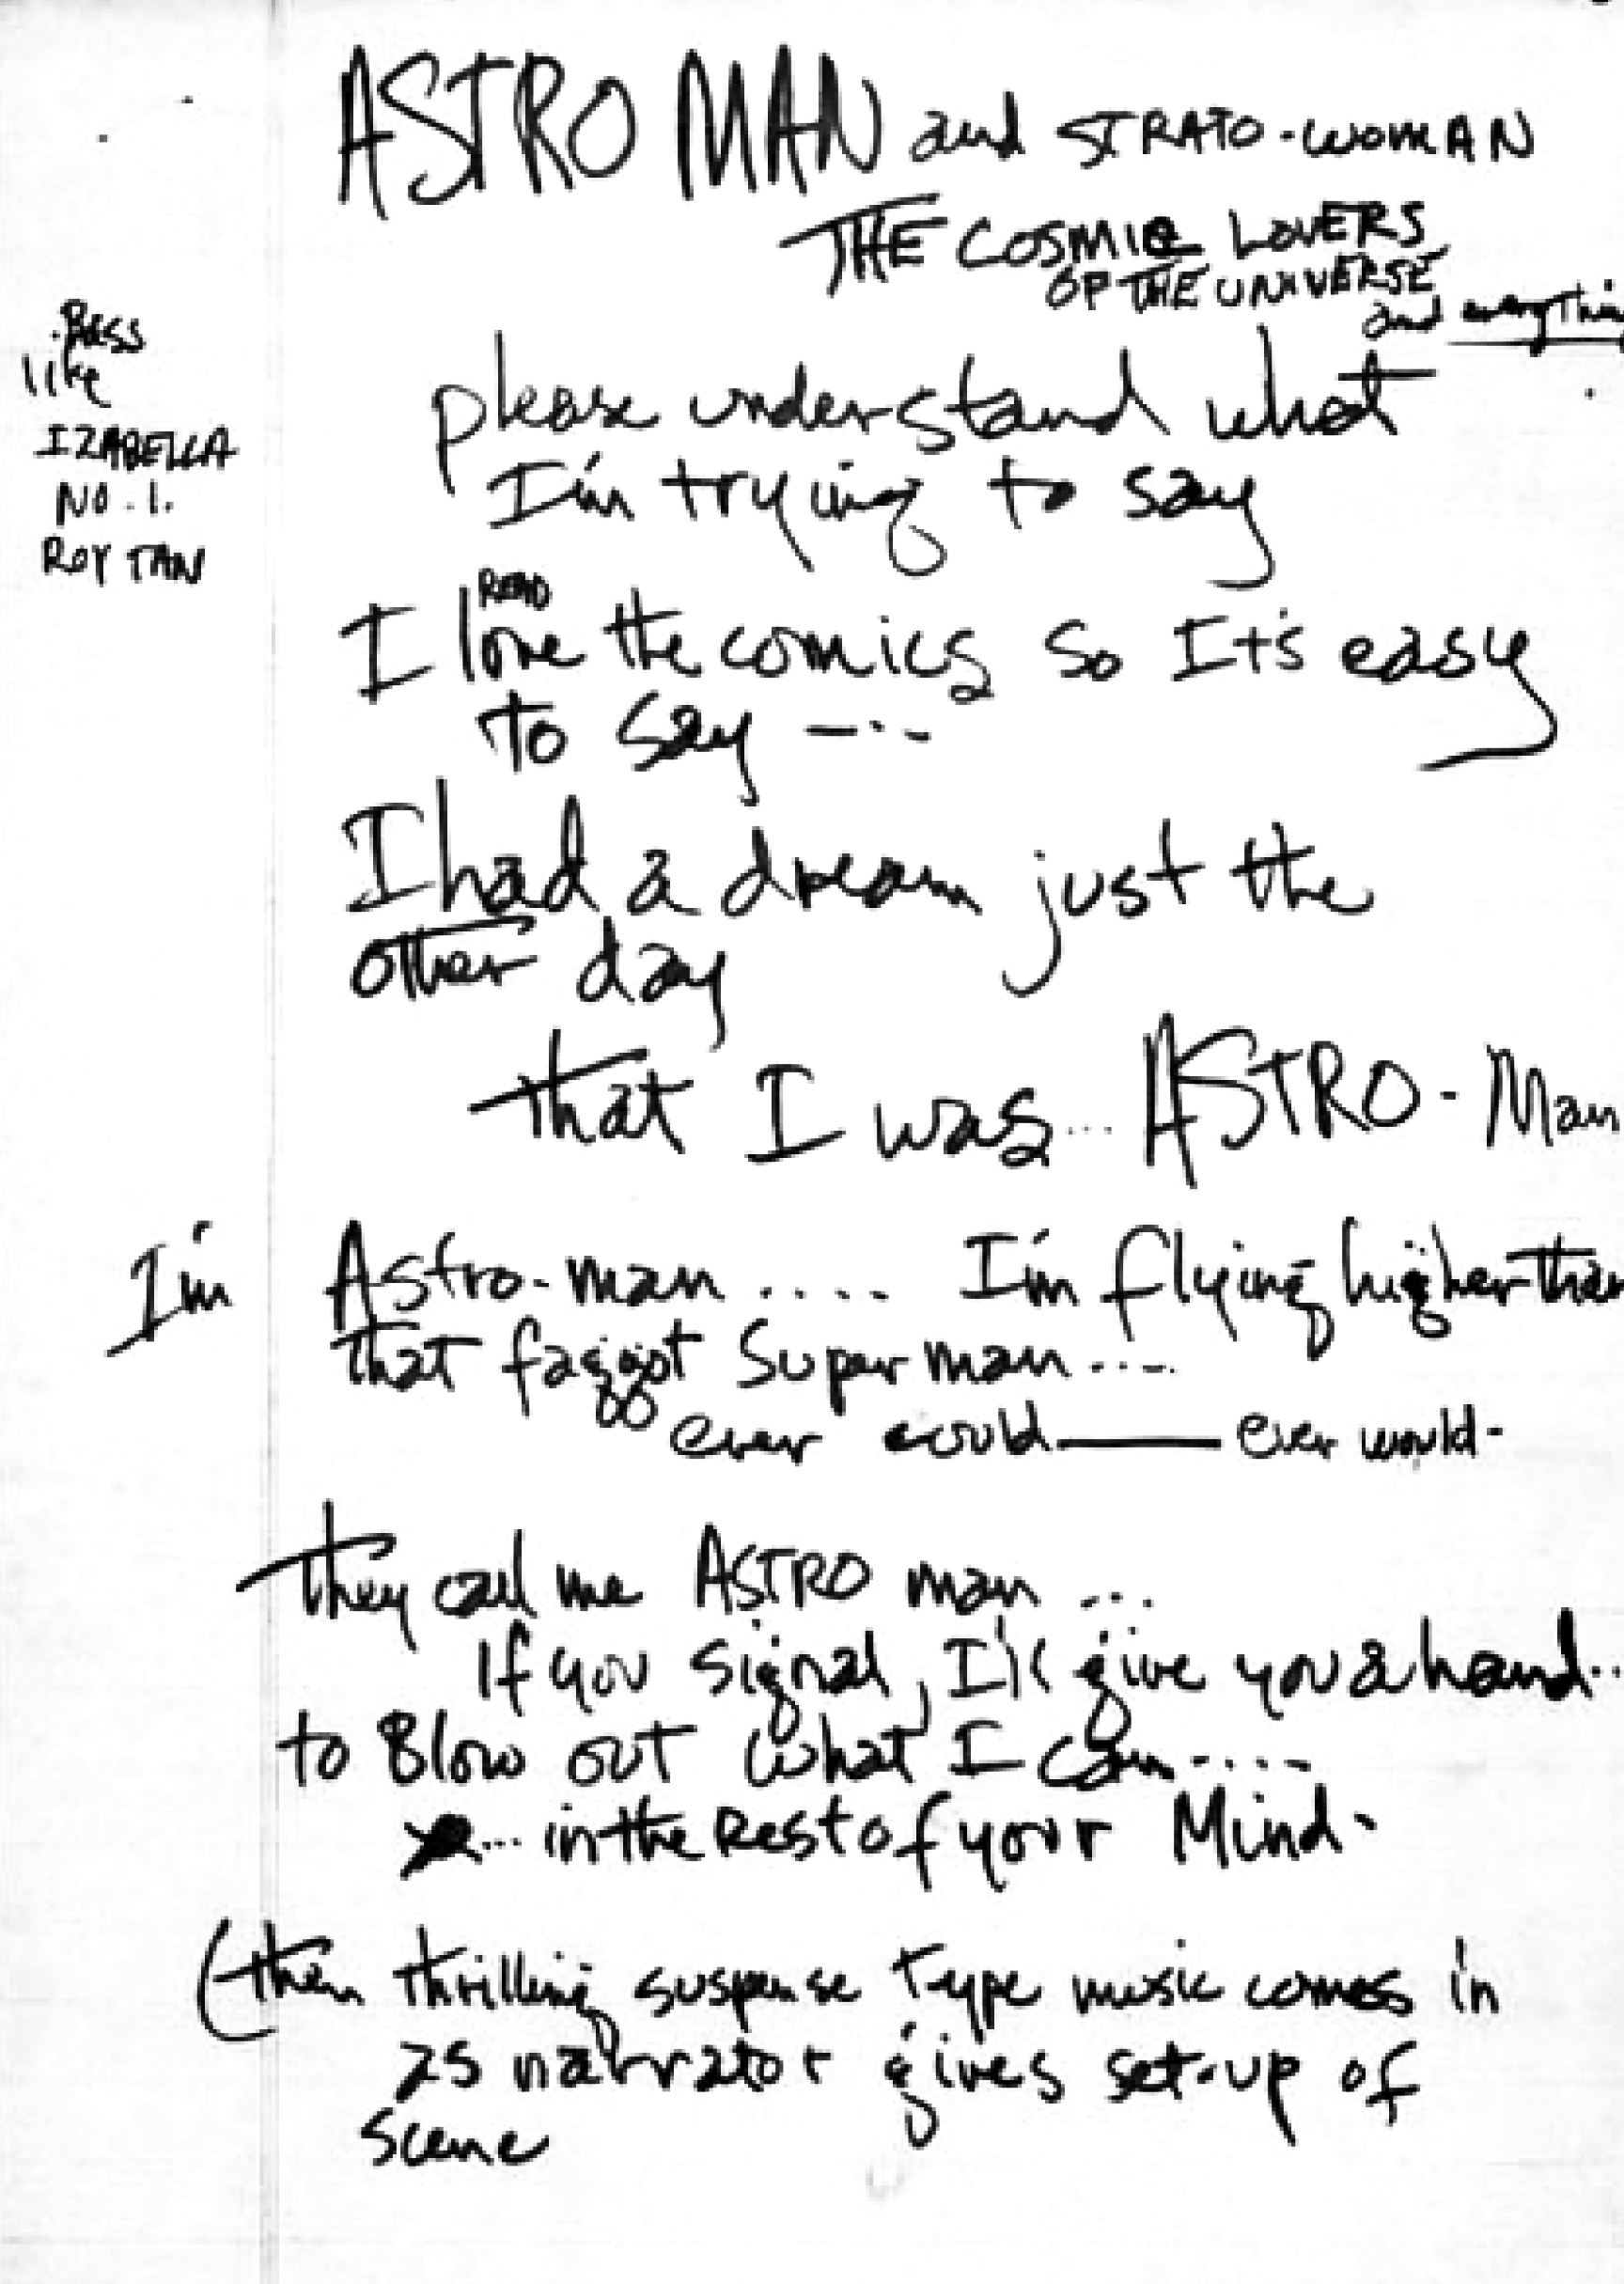 ASTRO MAN and STRATO-WOMAN
THE COSMIC LOVERS
OF THE UNIVERSE
and everything
.BASS
like
IZABELLA
NO. 1.
ROY TAN
please understand what
I'm trying to say
READ
I love the comics so It's easy
to say ----
I had a dream just the
other day
that I was... ASTRO-Man
I'm Astro-man .... I'm flying higher than
that faggot Super man ....
ever could —— ever would-
They call me ASTRO man ...
If you signal, I'll give you a hand..
to Blow out what I can ....
... in the Rest of your Mind.
(then thrilling suspense type music comes in
as narrator gives set-up of
scene